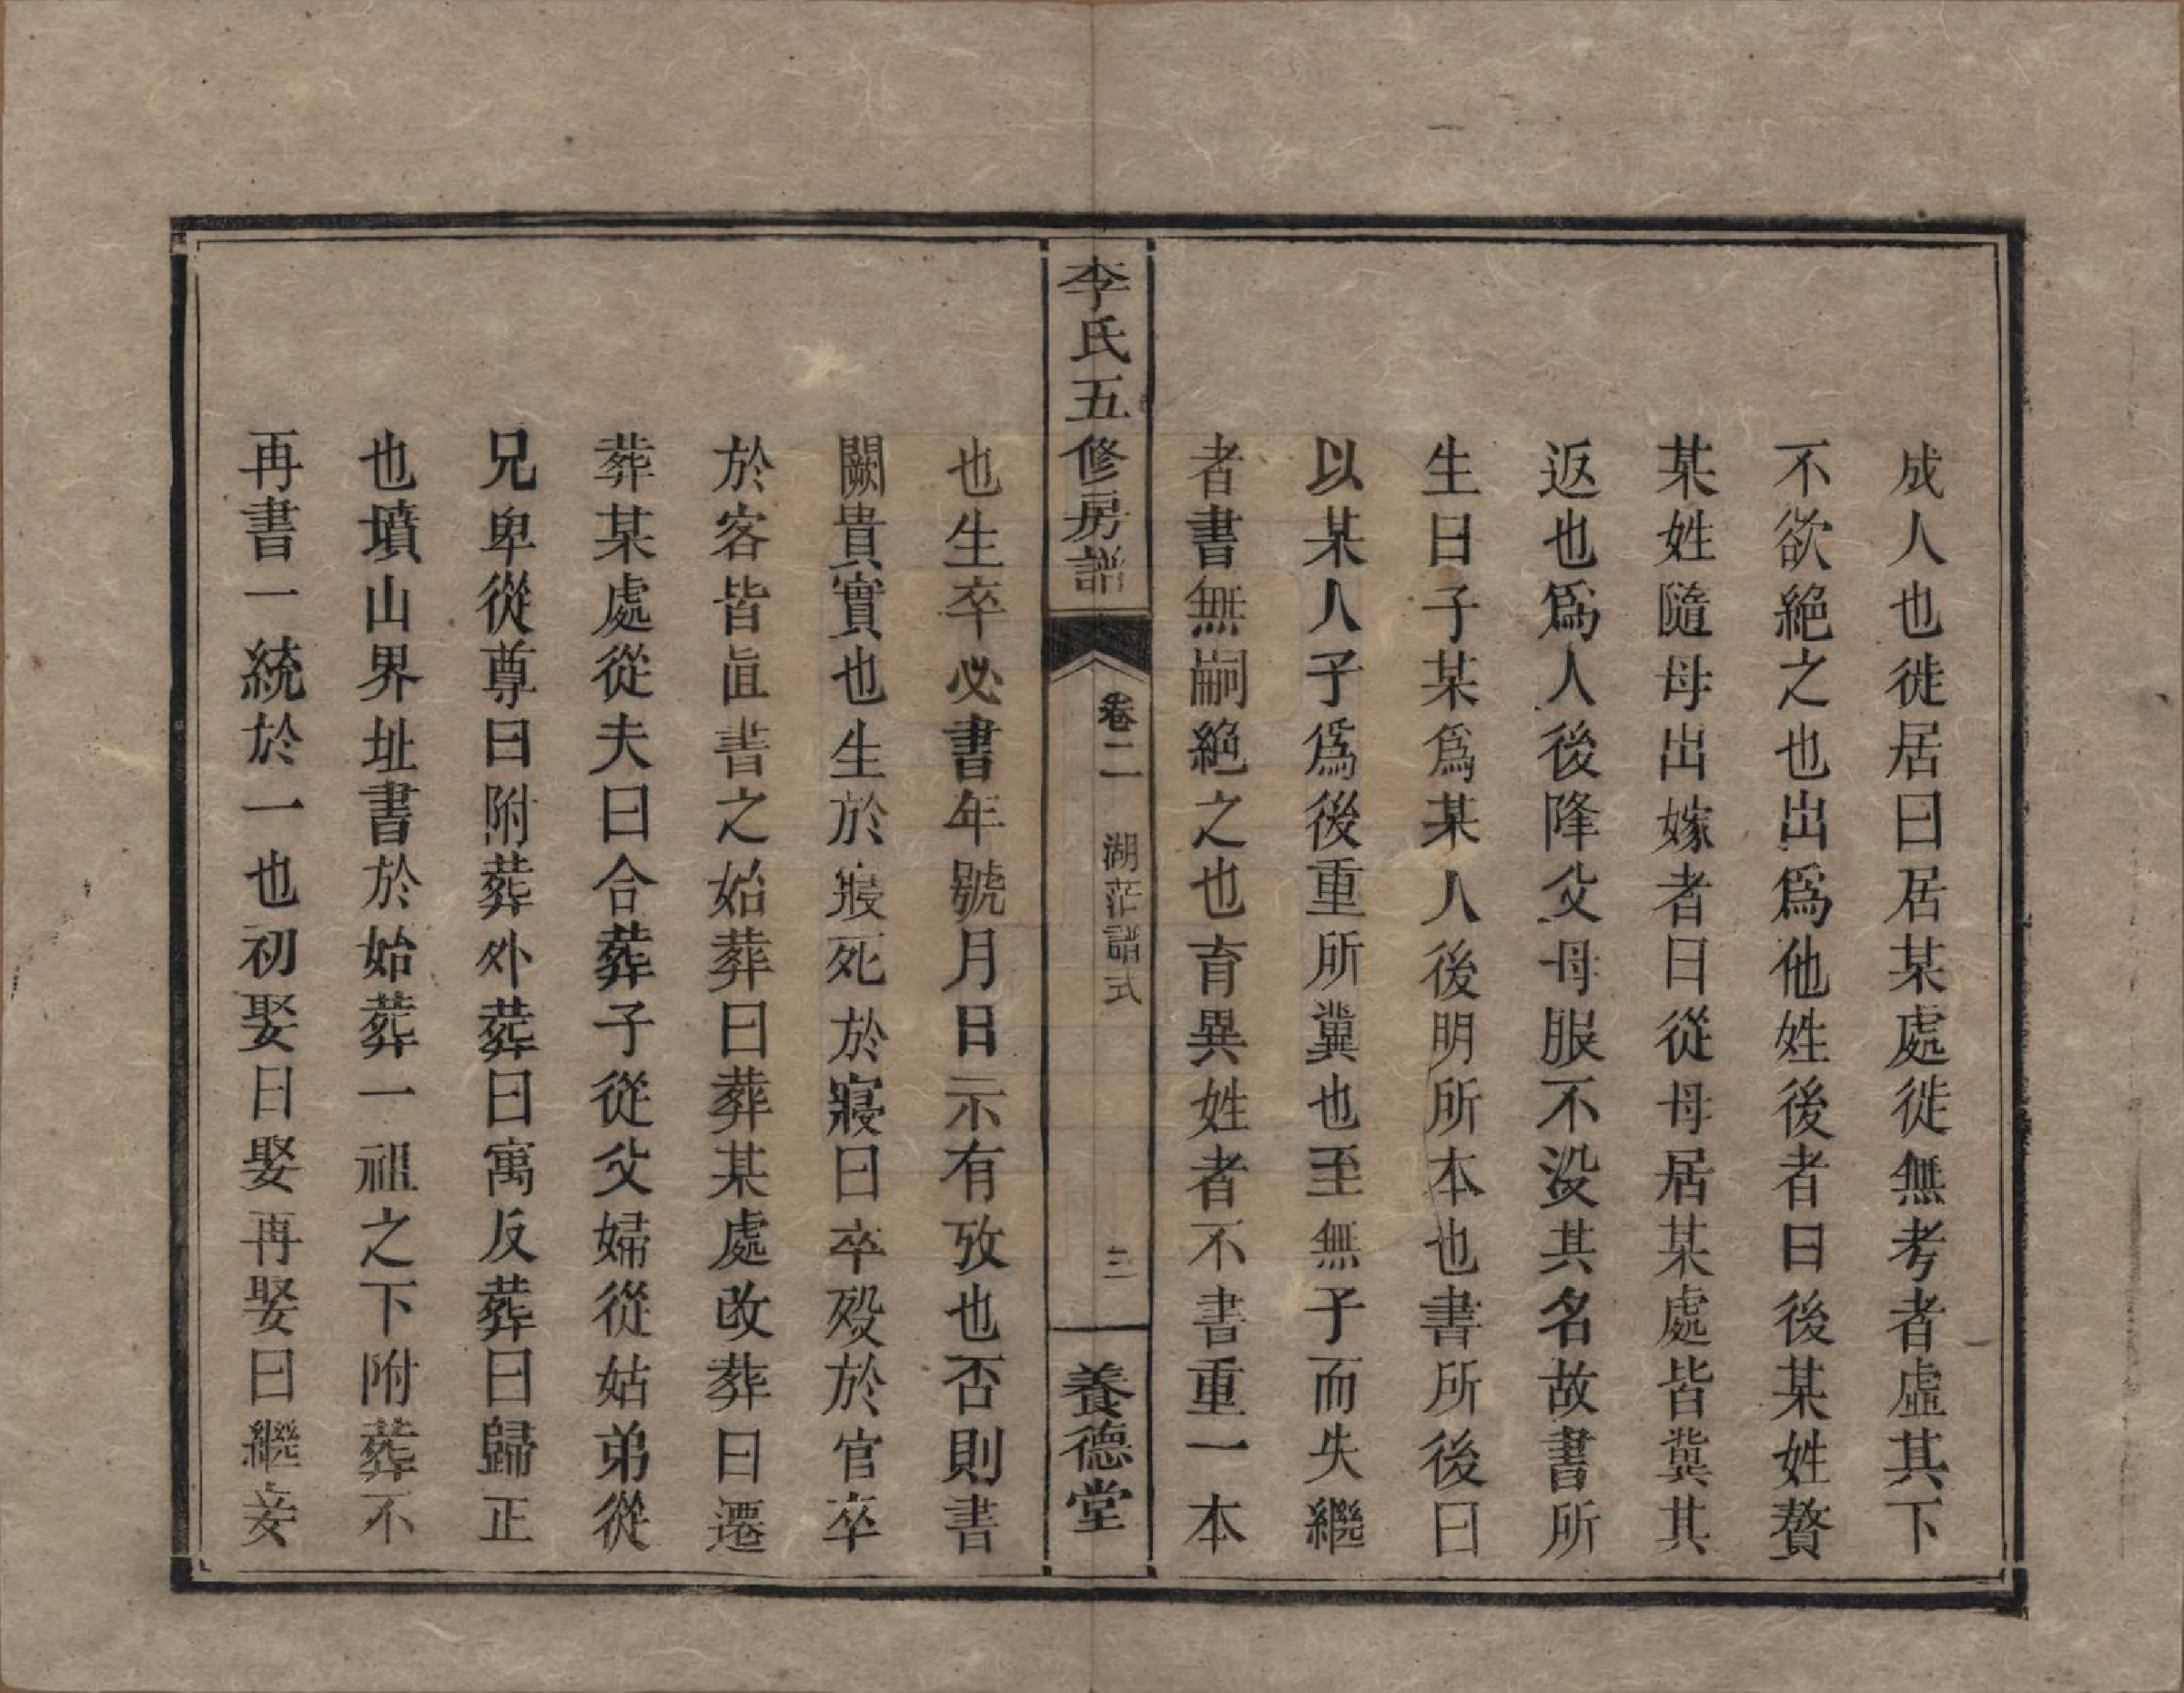 成人也徙居曰居某處徙無考者虛其下
不欲絕之也出爲他姓後者曰後某姓贅
某姓隨母出嫁者曰從母居某處皆冀其
返也爲人後降父母服不没其名故書所
生曰子某爲某人後明所本也書所後曰
以某人子爲後重所冀也至無子而失繼
者書無嗣絶之也育異姓者不書重一本
李氏五修房譜
卷二
湖茫譜式
三
養德堂
也生卒必書年號月日示有攷也否則書
闕貴實也生於寢死於寢曰卒殁於官卒
於客皆直書之始葬曰葬某處改葬曰遷
葬某處從夫曰合葬子從父婦從姑弟從
兄卑從尊曰附葬外葬曰寓反葬曰歸正
也墳山界址書於始葬一祖之下附葬不
再書一統於一也初娶曰娶再娶曰繼妾